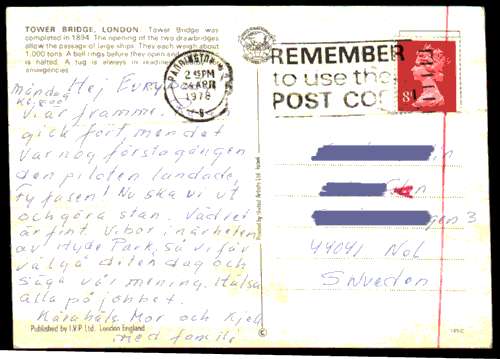 TOWER BRIDGE, LONDON. Tower Bridge was
completed in 1894. The opening of the two drawbridges
allow the passage of large ships. They each weigh about
1,000 tons. A bell rings before they open and
is halted. A tug is always in readiness
emergencies
måndag
kl.
Hej
Vi är framme.
gick fort, men det
var nog första gången
den piloten landade,
Fy fasen! Nu ska vi ut
och göra stan. Vädret
är fint. Vi bor i närheten
av Hyde Park, så vi får
väl gå dit en dag och
säga vår mening. Hälsa
alla på jobbet.
Mor och Kjell
med familj
Published by I.V.P Ltd. London England
PADDINGTON
2 45PM
24 APR
1978
REMEMBER
to use the
POST CO
8½
3
44041 Nol
Sweden